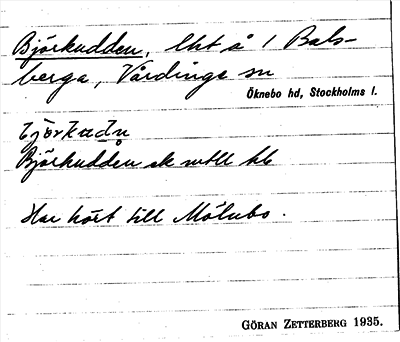 Björkudden, lht å 1 Bals-
berga, Vårdinge sn
Öknebo hd, Stockholms l.
Björkudden sk
Har hört till Mölnbo.
GÖRAN ZETTERBERG 1935.